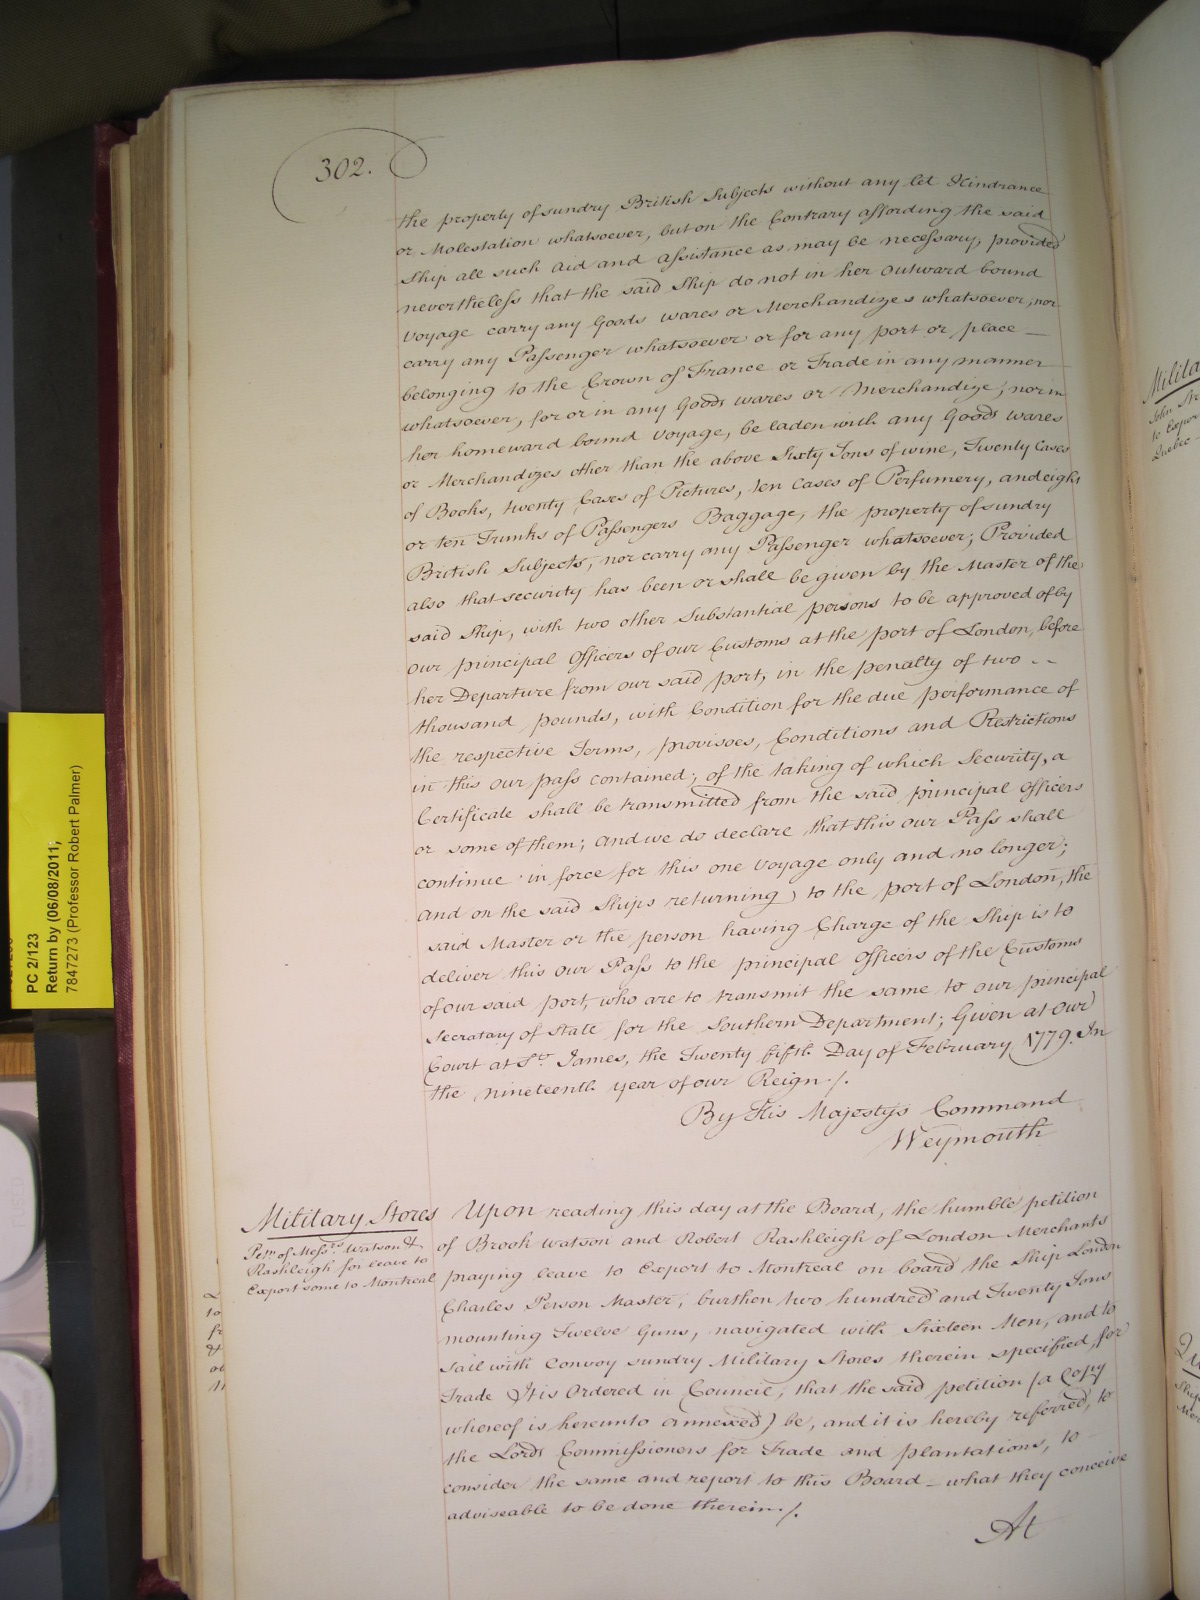 302.
the property of sundry British Subjects without any let Hindrance
or Molestation whatsoever, but on the Contrary affording the said
Ship all such Aid and Assistance as may be necessary, provided
nevertheless that the said Ship do not in her outward bound
Voyage carry any Goods wares or Merchandizes whatsoever, nor
carry any Passenger whatsoever or for any port or place —
belonging to the Crown of France or Trade in any manner
whatsoever, for or in any Goods wares or Merchandize, nor in
her homeward bound Voyage, be laden with any Goods wares
or Merchandizes other than the above Sixty Tons of wine, Twenty Cases
of Books, twenty Cases of Pictures, ten Cases of Perfumery, and eight
or ten Trunks of Passengers Baggage, the property of sundry
British Subjects, nor carry any Passenger whatsoever; Provided
also that security has been or shall be given by the Master of the
said Ship, with two other Substantial persons to be approved of by
our principal Officers of our Customs at the port of London, before
her Departure from our said port, in the penalty of two
thousand pounds, with Condition for the due performance of
the respective Terms, provisoes, Conditions and Restrictions
in this our pass contained; of the taking of which Security, a
Certificate shall be transmitted from the said principal Officers
or some of them; and we do declare that this our Pass shall
continue in force for this one Voyage only and no longer;
and on the said Ships returning to the port of London, the
said Master or the person having Charge of the Ship is to
deliver this our Pass to the principal Officers of the Customs
of our said port, who are to transmit the same to our principal
Secretary of State for the Southern Department; Given at Our
Court at St. James, the Twenty fifth Day of February 1779. In
the nineteenth year of our Reign./.
By His Majestys Command
Weymouth
Military Stores
Petn. of Messrs. Watson &
Rashleigh for leave to
Export some to Montreal
Upon reading this day at the Board, the humble petition
of Brook Watson and Robert Rashleigh of London Merchants
praying leave to Export to Montreal on board the Ship London
Charles Person Master, burthen two hundred and Twenty Tons
mounting Twelve Guns, navigated with Sixteen Men, and to
sail with Convoy sundry Military Stores therein specified, for
Trade It is Ordered in Council, that the said petition (a Copy
whereof is hereunto annexed) be, and it is hereby referred, to
the Lords Commissioners for Trade and plantations, to
consider the same and report to this Board what they conceive
adviseable to be done therein./.
At
PC 2/123
Return by (06/08/2011;
7847273 (Professor Robert Palmer)
Milita
John Str
to Expor
Quebec